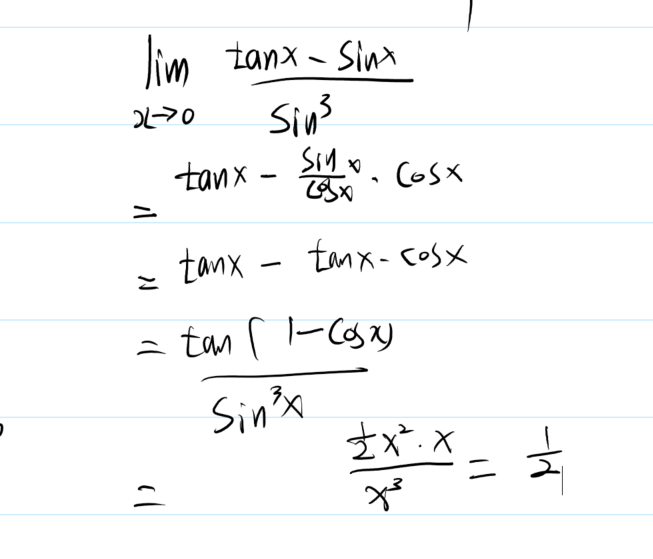 lim x→0 (tanx - sinx) / sin³
= tanx - (sin x / cosx) · cosx
= tanx - tanx - cosx
= tan(1-cosx) / sin³x
= (½x² · x) / x³ = 1/2